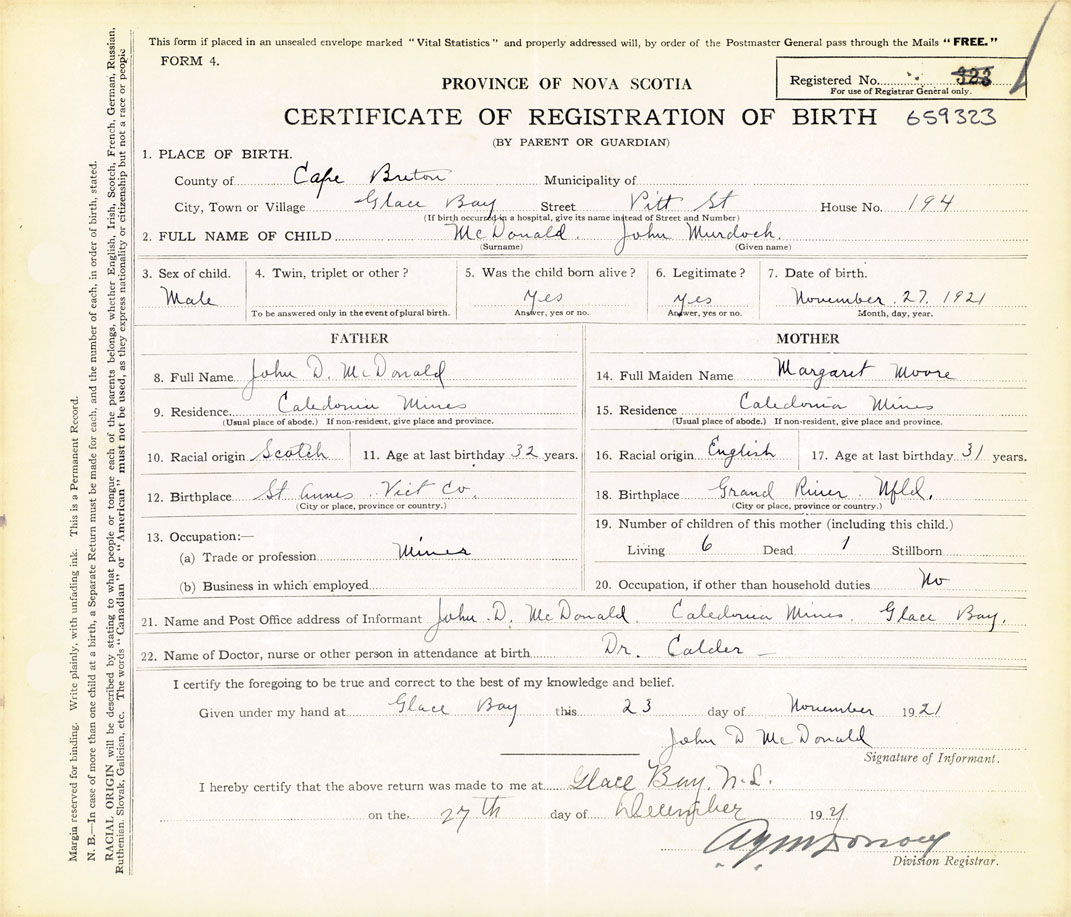 This form if placed in an unsealed envelope marked "Vital Statistics" and properly addressed will, by order of the Postmaster General pass through the Mails "FREE."
FORM 4.
Registered No. 323
For use of Registrar General only.
PROVINCE OF NOVA SCOTIA
CERTIFICATE OF REGISTRATION OF BIRTH 659323
(BY PARENT OR GUARDIAN)
1. PLACE OF BIRTH.
County of Cape Breton Municipality of
City, Town or Village Glace Bay Street Pitt St House No. 194
(If birth occurred in a hospital, give its name instead of Street and Number)
2. FULL NAME OF CHILD McDonald. John Murdoch.
(Surname) (Given name)
3. Sex of child. 4. Twin, triplet or other? 5. Was the child born alive? 6. Legitimate? 7. Date of birth.
Male yes yes November. 27. 1921
To be answered only in the event of plural birth. Answer, yes or no. Answer, yes or no. Month, day, year.
FATHER
8. Full Name John D. McDonald
9. Residence Caledonia Mines
(Usual place of abode.) If non-resident, give place and province.
10. Racial origin Scotch 11. Age at last birthday 32 years.
12. Birthplace St Annes Vict Co.
(City or place, province or country.)
13. Occupation:—
(a) Trade or profession
(b) Business in which employed
MOTHER
14. Full Maiden Name Margaret Moore
15. Residence Caledonia Mines
(Usual place of abode.) If non-resident, give place and province.
16. Racial origin English 17. Age at last birthday 31 years.
18. Birthplace Grand River Nfld.
(City or place, province or country.)
19. Number of children of this mother (including this child.)
Living 6 Dead 1 Stillborn
20. Occupation, if other than household duties No
21. Name and Post Office address of Informant John D. McDonald. Caledonia Mines. Glace Bay.
22. Name of Doctor, nurse or other person in attendance at birth Dr. Calder —
I certify the foregoing to be true and correct to the best of my knowledge and belief.
Given under my hand at Glace Bay this 23 day of November 1921
John D McDonald
Signature of Informant.
I hereby certify that the above return was made to me at Glace Bay, N.S.
on the 27th day of December 1921
Division Registrar.
Margin reserved for binding. Write plainly, with unfading ink. This is a Permanent Record.
N. B.—In case of more than one child at a birth, a Separate Return must be made for each, and the number of each, in order of birth, stated.
RACIAL ORIGIN will be described by stating to what people or tongue each of the parents belongs, whether English, Irish, Scotch, French, German, Russian,
Ruthenian, Slovak, Galician, etc. The words "Canadian" or "American" must not be used, as they express nationality or citizenship but not a race or people